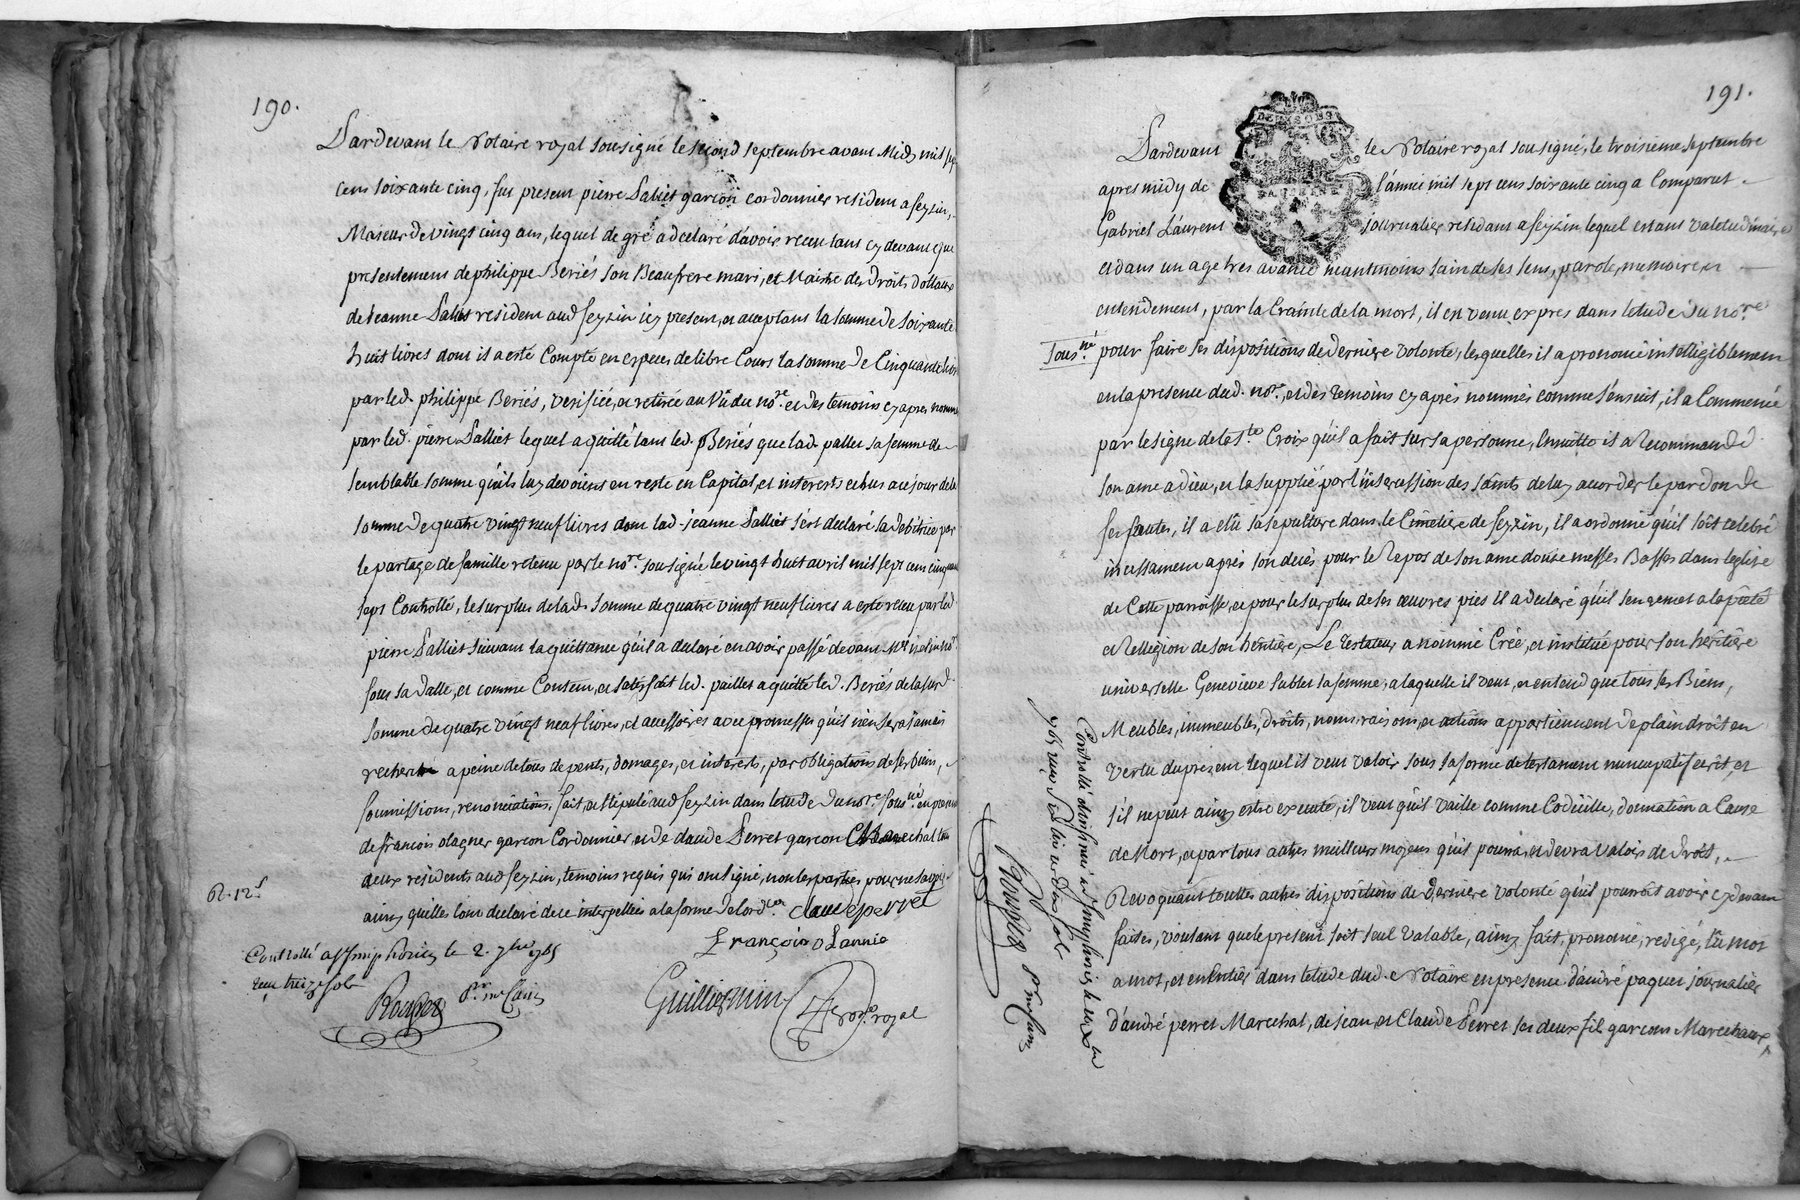 190.
Pardevant le Notaire royal sousigné le second septembre avant Midy mil sept
cens soixante cinq, fut present pierre Palliet garcon cordonnier resident a seyzin,
Majeur de vingt cinq ans, lequel de gré a declaré d'avoir receu tant cy devant que
presentement de philippe Beriés son Beaufrere mari, et Maitre des Droits dottaux
de Jeanne Palliet resident aud seyzin icy present, et acceptant la somme de soixante
huit livres dont il a esté compté en especes de libre Cours la somme de Cinquante livres
par led. philippe Beriés, verifiée, et retirée au Vû du no.re et des temoins cy apres nommés
par led. pierre Palliet lequel a quitté tant led. Beriés que lad. palliet sa femme de
semblable somme qu'ils luy devoient en reste en Capital, et interets echus a ce jour de la
somme de quatre vingt neuf livres dont lad. jeanne Palliet s'est declaré sa debitrice par
le partage de famille retenu par le no.re sousigné le vingt huit avril mil sept cent cinquante
sept Controllé, le surplus de lad. somme de quatre vingt neuf livres a esté receu par led.
pierre Palliet suivant la quittance qu'il a declaré en avoir passé devant M.e no.re
sous sa datte, et comme Content, et satisfait led. palliet a quitté led. Beriés de la susd.
somme de quatre vingt neuf livres, et accessoires avec promesses qu'il n'en sera jamais
recherché a peine de tous depents, domages, et interets, par obligations de ses biens,
soumissions, renonciations, fait, et stipulé aud seyzin dans letude du no.re sous.né en presence
de francois olagner garcon Cordonnier, et de claude Perret garcon Marechal tous
deux residents aud seyzin, temoins requis qui ont signé, non les parties pour ne savoir
ainsy qu'elles l'ont declaré de ce interpellées a la forme de lord.ce claude perret
R. 12.s
François olannie
Controllé a St simphorien le 2. 7bre 1765
receu treize sols
Rougez
Guilliermin
no.re royal
191.
Pardevant le Notaire royal sousigné, le troisieme septembre
apres midy de l'année mil sept cens soixante cinq a Comparut
Gabriel Laurent journalier residant a seyzin lequel estant valetudinaire
et dans un age tres avancé neantmoins sain de ses sens, parole, memoire, et
entendement, par la Crainte de la mort, il en venu expres dans letude du no.re
sous.né pour faire ses dispositions de derniere volonté, lesquelles il a prononcé intelligiblement
en la presence dud. no.re, et des temoins cy aprés nommés comme s'ensuit, il a Commencé
par le signe de la s.te Croix qu'il a fait sur sa personne, Ensuitte il a Recommandé
son ame a dieu, et la supplié par l'intercession des saints de luy accorder le pardon de
ses fautes, il a élû sa sepulture dans le Cimetiere de seyzin, il a ordonné qu'il soit celebré
incessament aprés son decés pour le Repos de son ame douse messes Basses dans leglise
de Cette parroisse, et pour le surplus de ses œuvres pies il a declaré qu'il s'en remet a la pieté
et Relligion de son heritiere, Le Testateur a nommé Créé, et institué pour son heritiere
universelle Genevieve sublet sa femme, a laquelle il veut, et entend que tous ses Biens,
Meubles, immeubles, droits, noms, raisons, et actions appartiennent de plain droit en
vertu du present lequel il veut valoir sous la forme de testament nuncupatif ecrit, et
s'il ne peut ainsy estre executé, il veut qu'il vaille comme Codicille, donnation a Cause
de Mort, et par tous autres meilleurs moyens qu'il pourra, et devra valoir de droit,
Revoquant touttes autres dispositions de derniere volonté qu'il pourroit avoir cy devant
faites, voulant que le present soit seul valable, ainsy fait, prononcé, redigé, lû mot
a mot, et en entier dans letude dud. Notaire en presence d'andré paquet journalier
d'andré perret Marechal, de jean, et Claude Perret ses deux fils garcons Marechaux,
Rougez